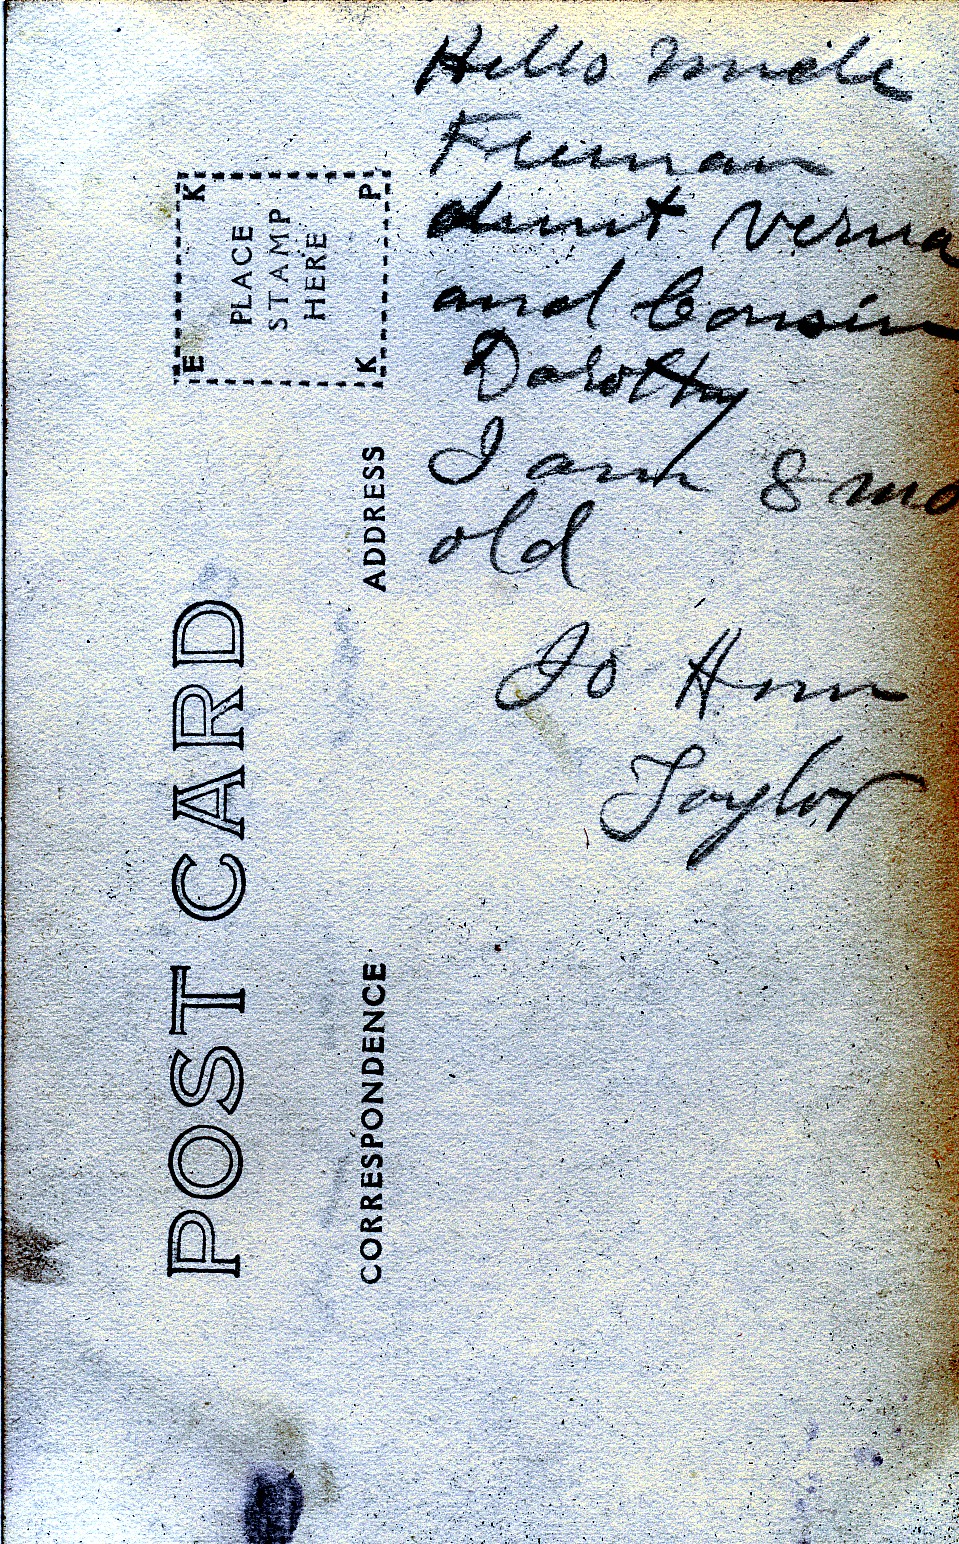 Hello Uncle
Freeman
Aunt Verna
and Cousin
Dorothy
I am 8 mo
old
Jo Ann
Taylor
POST CARD
CORRESPONDENCE
ADDRESS
E K K P
PLACE
STAMP
HERE